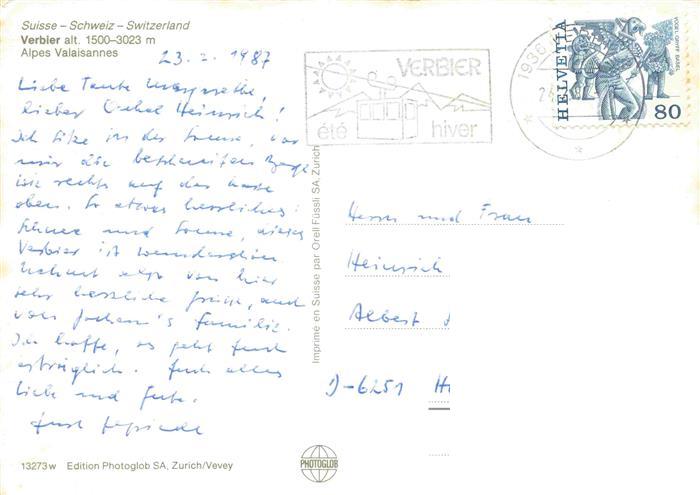 Suisse – Schweiz – Switzerland
Verbier alt. 1500–3023 m
Alpes Valaisannes
23. 2. 1987
Liebe Tante
lieber Onkel Heinrich!
Ich sitze in der Sonne, vor
mir die beschneiten Berge
wie rechts auf der Karte
oben. So etwas herrliches!
Schnee und Sonne, dieses
Verbier ist wunderschön.
Nehmt also von hier
sehr herzliche Grüsse, auch
von Jochen's Familie.
Ich hoffe, es geht Euch
erträglich. Euch alles
Liebe und Gute.
13273w Edition Photoglob SA, Zurich/Vevey
Imprimé en Suisse par Orell Füssli SA, Zurich
PHOTOGLOB
VERBIER
été hiver
1936
HELVETIA
VOGEL GRYFF BASEL
80
Herrn und Frau
Heinrich
Albert
D-6251